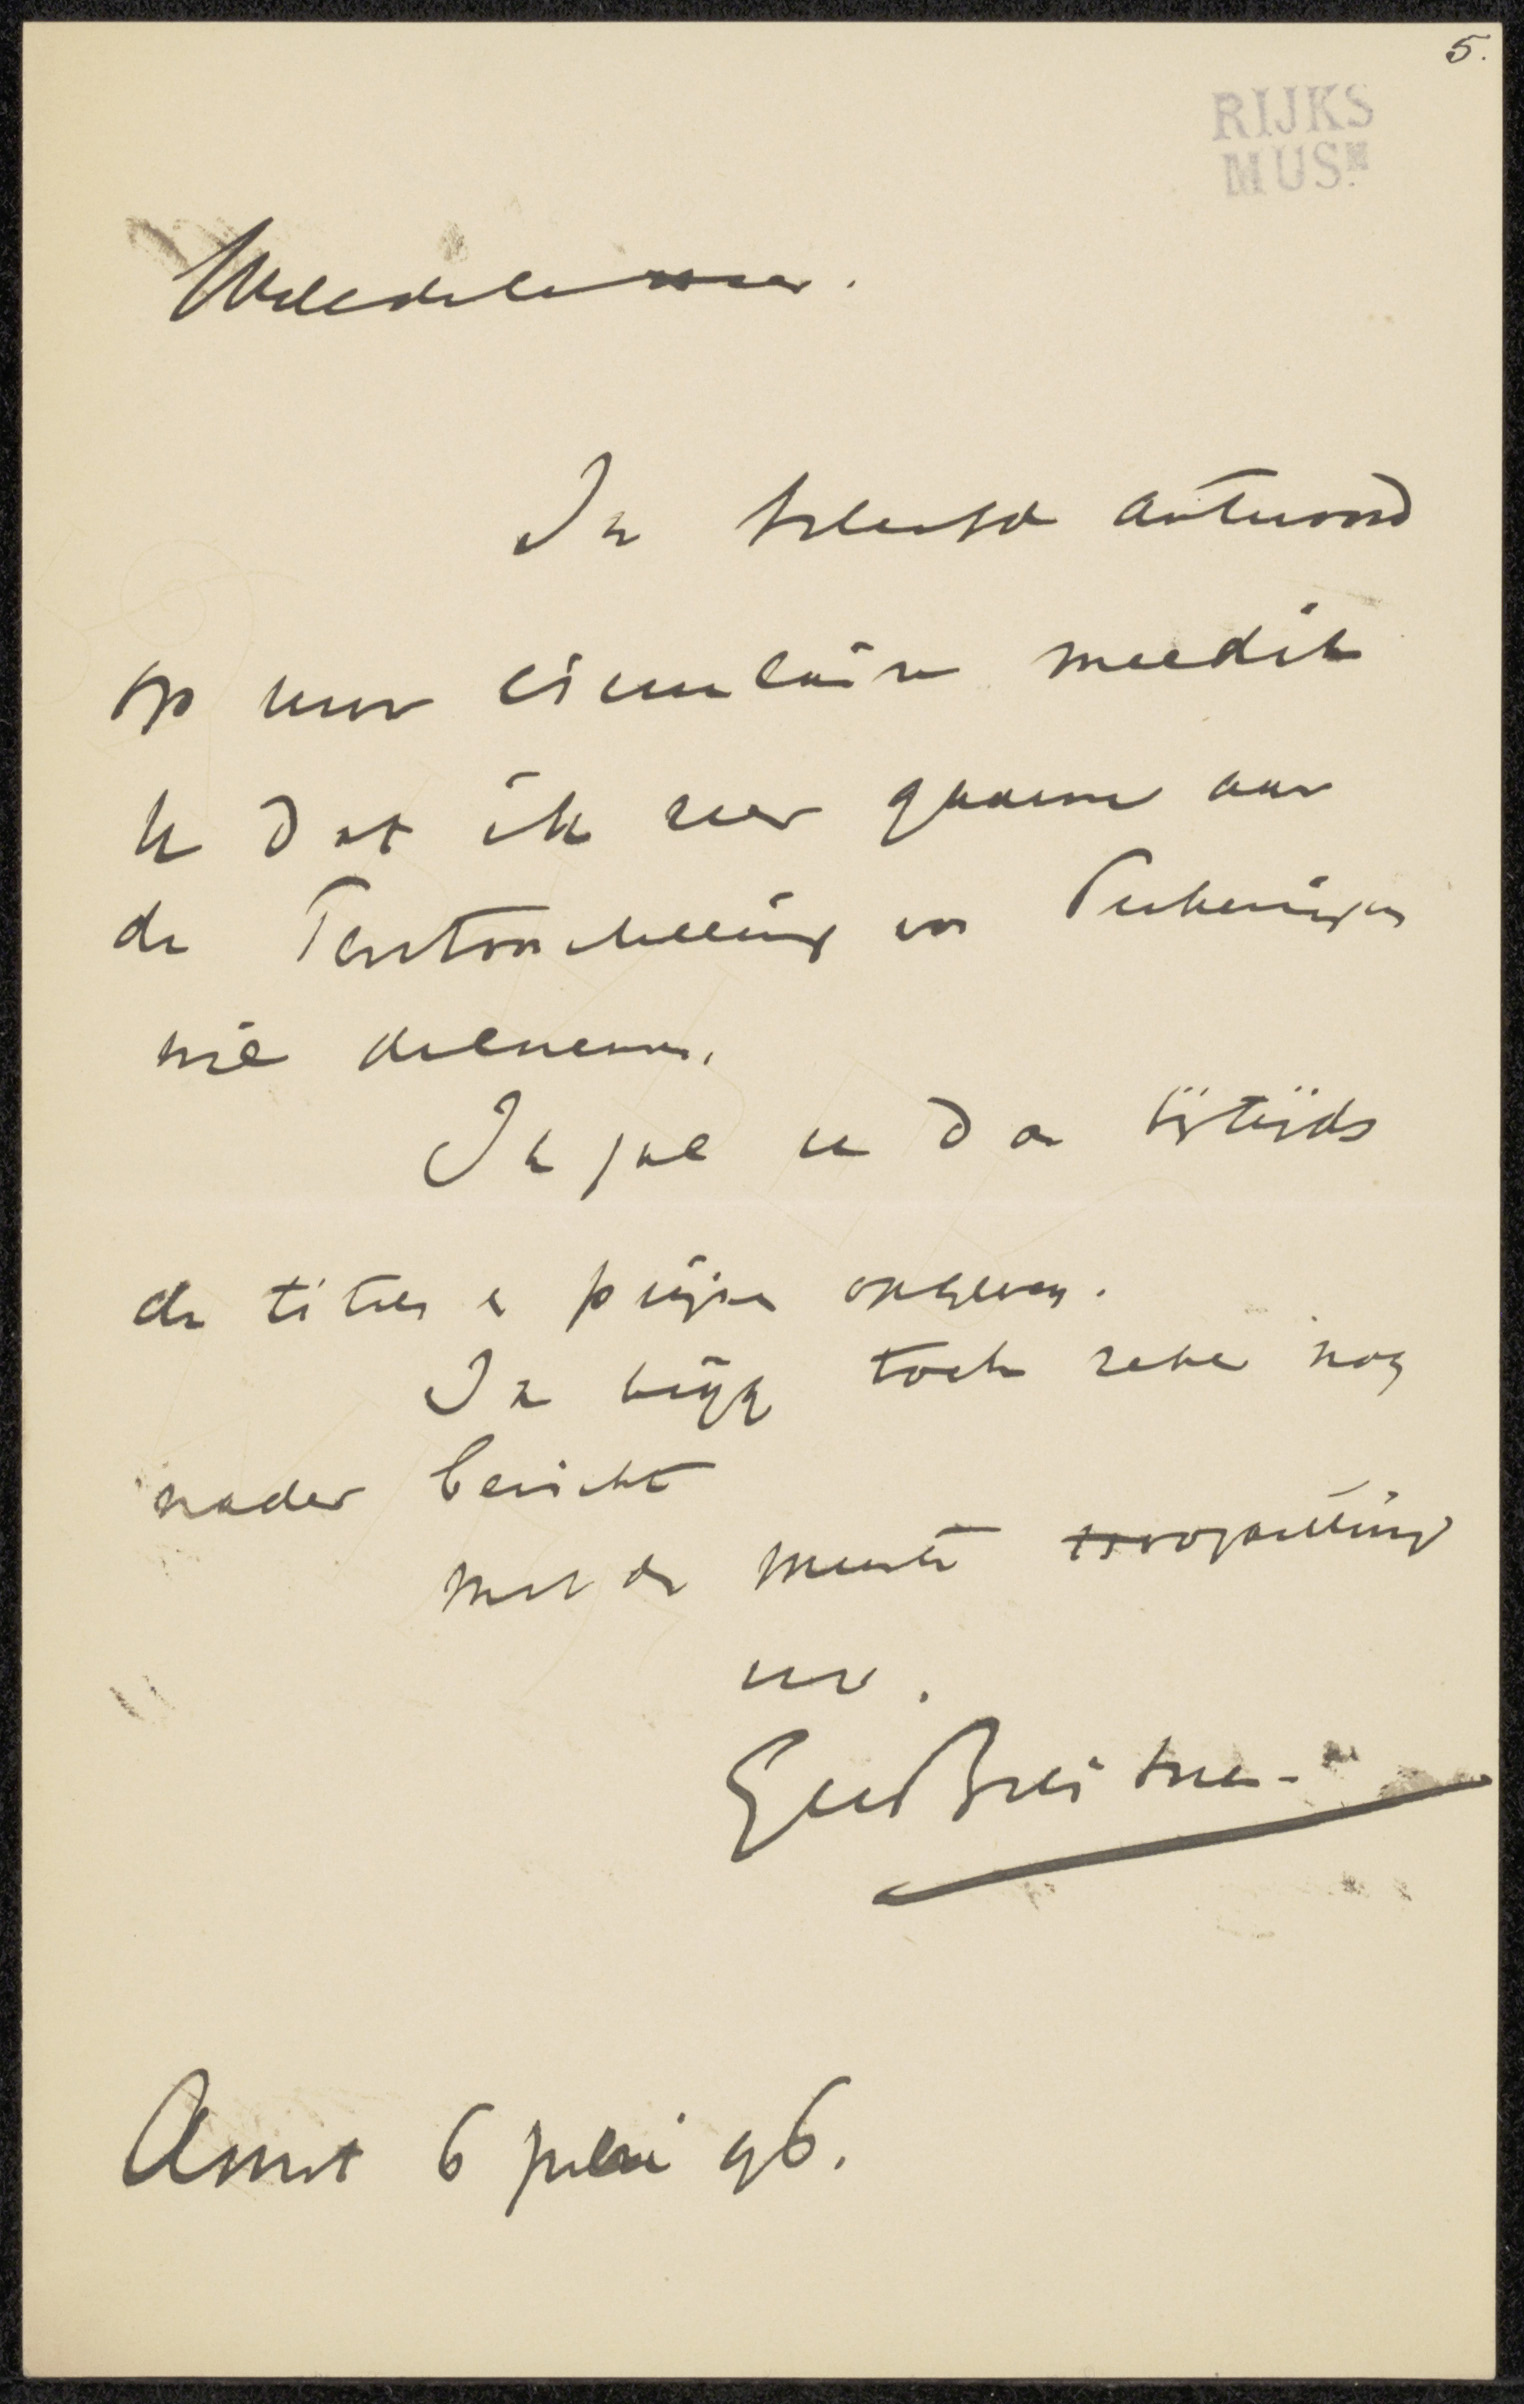 5.
RIJKS
MUSM.
WelEdele Heer.
In beleefd antwoord
op uw circulaire meed ik
U dat ik zeer gaarne aan
de Tentoonstelling van Teekeningen
wil deelnemen.
Ik zal u dan bijtijds
de titels en prijzen opgeven.
Ik krijg toch zeker nog
nader bericht
met de meeste hoogachting
uw.
GHBreitner
Amst 6 juli 96.